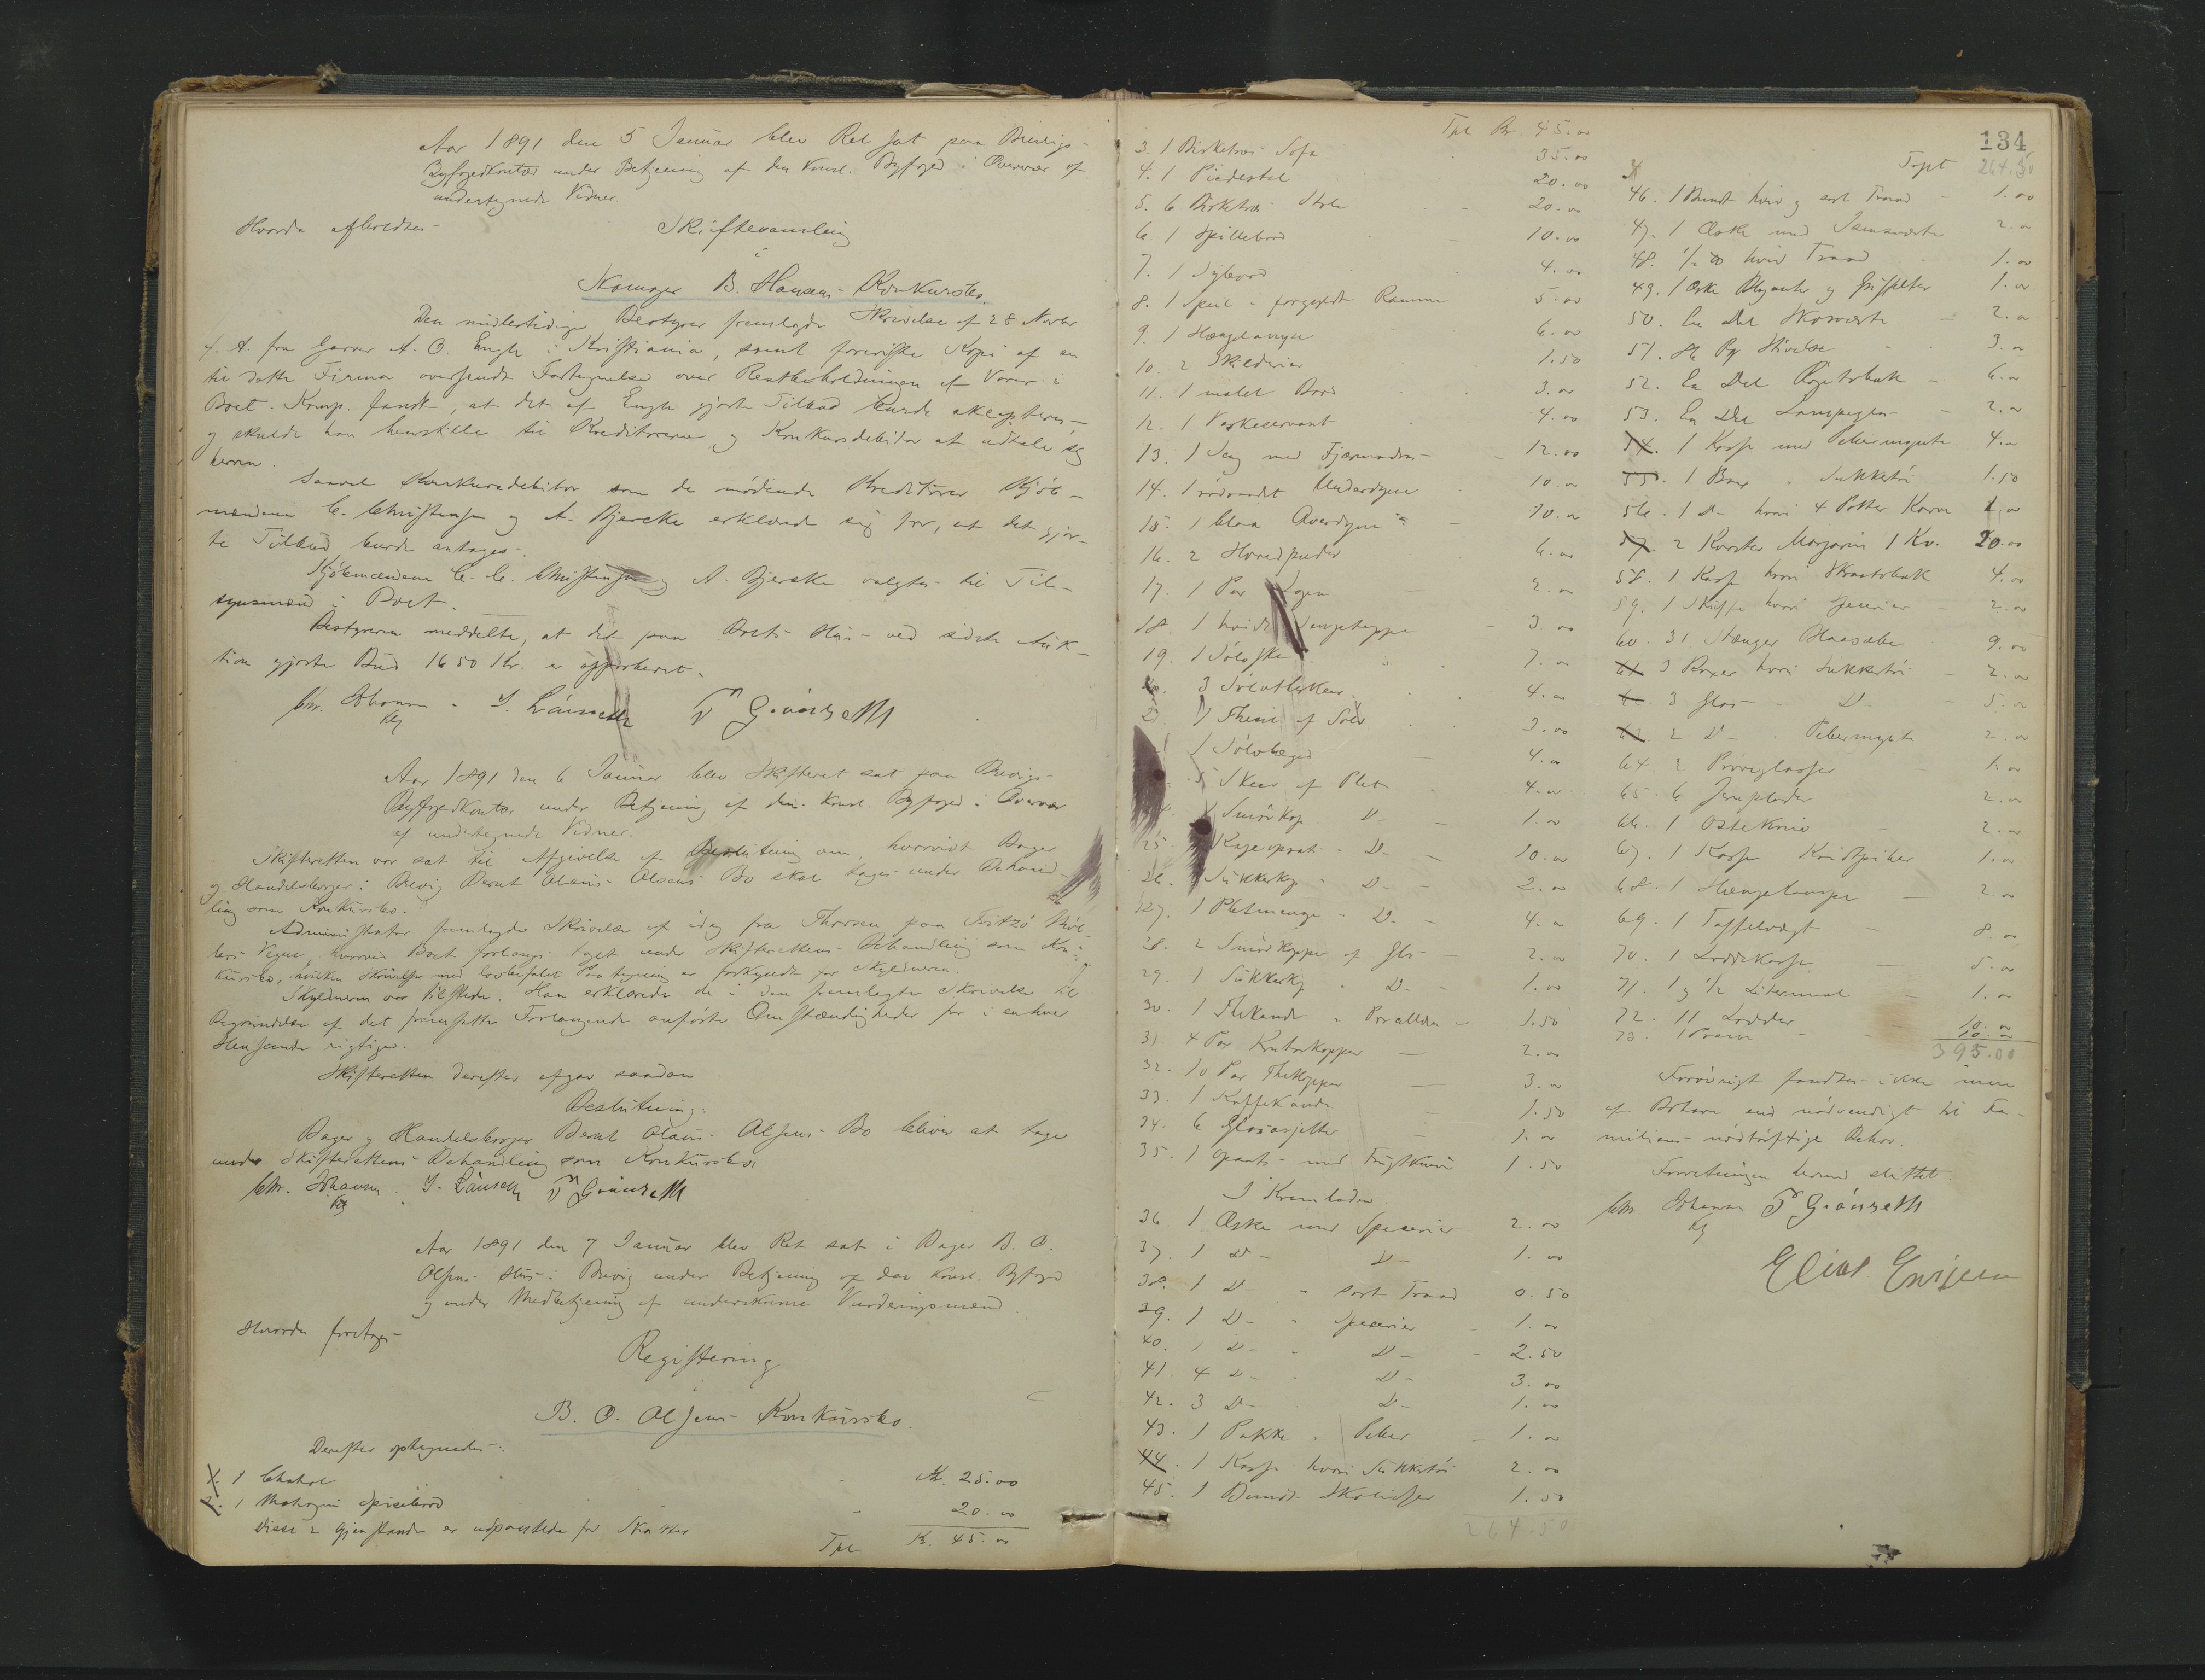 Aar 1891 den 5 Januar blev Ret sat paa Brevigs
Byfogedkontor under Betjening af den konst. Byfoged i Overvær af
undertegnede Vidner.
Hvorda afholdtes
Skiftesamling
i
Skomager B. Hansens Konkursbo.
Den midlertidige Bestyrer fremlagde Skrivelse af 28 Novbr
f. A. fra Garver A. O. Engh i Kristiania, samt foreviste Kopi af en
til dette Firma oversendt Fortegnelse over Restbeholdningen af Varer i
Boet. Komp. fandt, at det af Engh gjorte Tilbud burde akcepteres,
og skulde han henstille til Kreditorerne og Konkursdebitor at udtale sig
herom.
Saavel Konkursdebitor som de mødende Kreditorer Kjøb-
mændene C. Christensen og A. Bjercke erklærede sig for, at det gjor-
te Tilbud burde antages.
Kjøbmændene C. C. Christensen og A. Bjercke valgtes til Til-
synsmænd i Boet.
Bestyreren meddelte, at det paa Boets Hus ved sidste Auk-
tion gjorte Bud 1650 Kr. er approberet.
Chr. Johansen
Aar 1891 den 6 Januar blev Skifteret sat paa Brevigs
Byfogedkontor under Betjening af den konst. Byfoged i Overvær
af undertegnede Vidner.
Skifteretten var sat til Afgivelse af Beslutning om, hvorvidt Bager
og Handelsborger i Brevig Bernt Olaus Olsens Bo skal tages under Behand-
ling som Konkursbo.
Administrator fremlagde Skrivelse af idag fra Thorsen paa Fritzø Møl-
lers Vegne, hvorved Boet forlanges taget under Skifterettens Behandling som Kon-
kursbo, hvilken Skrivelse med lovbefalet Paategning er forkyndt for Skyldneren.
Skyldneren var tilstede. Han erklærede de i den fremlagte Skrivelse til
Begrundelse af det fremsatte Forlangende anførte Omstændigheder for i enhver
Henseende rigtige.
Skifteretten derefter afgav saadan
Beslutning:
Bager og Handelsborger Bernt Olaus Olsens Bo bliver at tage
under Skifterettens Behandling som Konkursbo.
Chr. Johansen
Aar 1891 den 7 Januar blev Ret sat i Bager B. O.
Olsens Hus i Brevig under Betjening af den konst. Byfoged
og under Medbetjening af underskrevne Vurderingsmænd.
Hvorda foretoges
Registering
i
B. O. Olsens Konkursbo.
Derefter optegnedes:
1. 1 Chatol Kr. 25.00
2. 1 Mahogni Spisebord - 20.00
Disse 2 Gjenstande er udpantede for Skatter
Tpt Kr. 45.00
134
Tpt Kr 45.00
3. 1 Birketræs Sofa 35.00
4. 1 Piedestal 20.00
5. 6 Birketræs Stole - 20.00
6. 1 Spillebord - 10.00
7. 1 Sybord 4.00
8. 1 Speil i forgyldt Ramme 5.00
9. 1 Hængelampe 6.00
10. 2 Skilderier 1.50
11. 1 malet Bord 3.00
12. 1 Vaskeservant 4.00
13. 1 Seng med Fjærmadras - 12.00
14. 1 rødrandet Underdyne 10.00
15. 1 blaa Overdyne - 10.00
16. 2 Hovedpuder 6.00
17. 1 Par Lagen - 2.00
18. 1 hvidt Sengeteppe - 3.00
19. 1 Sølvske 7.00
20. 3 Sølvtheskeer 4.00
21. 1 Thesi af Sølv 3.00
1 Sølvbæger 4.00
5 Skeer af Plet 4.00
1 Smørkop D - 1.00
25. Kageopsats D - 10.00
26. 1 Sukkerkop " D - 2.00
27. 1 Pletmenage " D - 4.00
28. 2 Smørkopper af Glas - 2.00
29. 1 Sukkerkop " D - 1.00
30. 1 Thekande " Porcellæn - 1.50
31. 4 Par Kontorkopper - 2.00
32. 10 Par Thekopper - 3.00
33. 1 Kaffekande - 1.50
34. 6 Glasasjetter - 1.00
35. 1 med Frugtknive 1.50
I Kramboden.
36. 1 Æske med Specerier 2.00
37. 1 D - D - 1.00
38. 1 D - " sort Traad 0.50
39. 1 D - " Specerier - 1.00
40. 1 D - " D - - 2.50
41. 4 D - " D - 3.00
42. 3 D - D - 1.00
43. 1 Pakke " Peber - 1.00
44. 1 Kasse hvori Sukkertøi 2.00
45. 1 Bundt Skolisser 1.50
264.50
Tspt 264.50
46. 1 Bundt hvid og sort Traad - 1.00
47. 1 Æske med 2.00
48. 1/2 ℔ hvid Traad 1.00
49. 1 Æske Blyanter og Grifler 1.00
50. En Del Skosværte - 2.00
51. Pk Stivelse - 3.00
52. En Del Røgtobak - 6.00
53. En Del Lampeglas - 2.00
54. 1 Kasse med Pebermynte 4.00
55. 1 Box " Sukkertøi 1.50
56. 1 D - hvori 4 Potter Korn 1.00
57. 2 Kvarter Margarin 1 Kv. 20.00
58. 1 Kasse hvori Skraatobak 4.00
59. 1 Skuffe hvori Specerier - 2.00
60. 31 Stænger Blaasæbe 9.00
61. 3 Boxer hvori Sukkertøi - 2.00
62. 3 Glas - D - - 5.00
63. 2 D - " Pebermynte 2.00
64. 2 Prøveglasser - 1.00
65. 6 Jernplader 2.00
66. 1 Ostekniv - 2.00
67. 1 Kasse Kridtpiber 1.00
68. 1 Hængelampe - 2.00
69. 1 Taffelvægt - 8.00
70. 1 Loddekasse - 5.00
71. 1 og 1/2 Litermaal - 1.00
72. 11 Lodder 10.00
73. 1 Pram - - 10.00
395.00
Forøvrigt fandtes ikke mere
af Bohave end nødvendigt til Fa-
miliens nødtørftige Behov.
Forretningen hermed sluttet.
Chr. Johansen
Elias